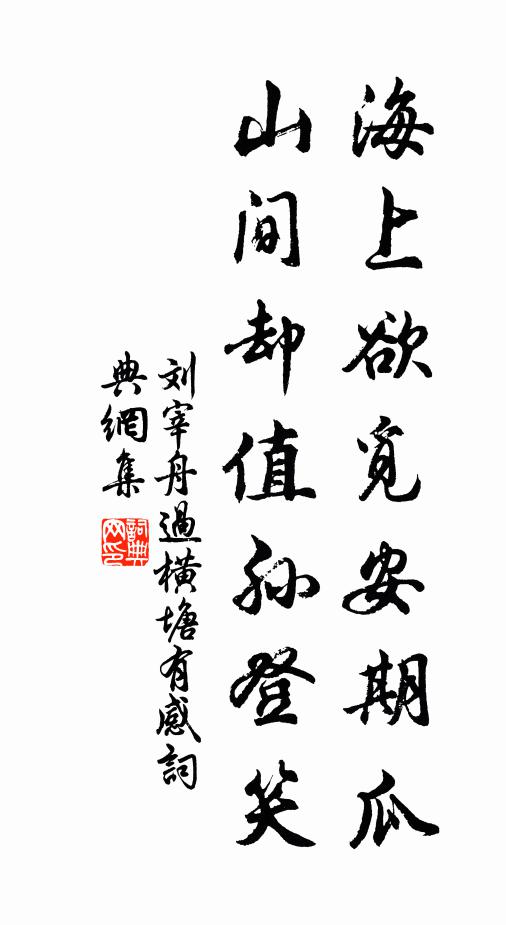 海上欲觅安期瓜
山间却值孙登笑
刘宰舟過横塘有感詞
典網集
詞典网印